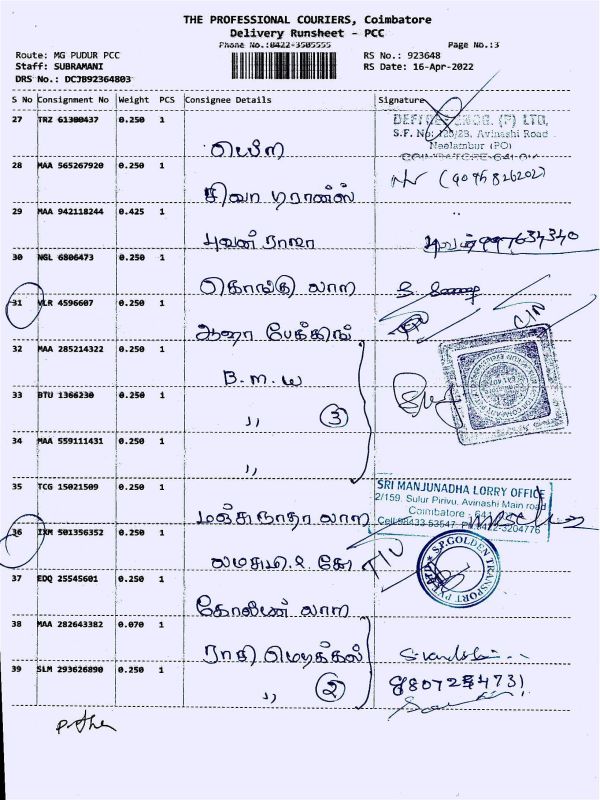 THE PROFESSIONAL COURIERS, Coimbatore
Delivery Runsheet - PCC
Phone No.:0422-3505555
Page No.:3
Route: MG PUDUR PCC
RS No.: 923648
Staff: SUBRAMANI
RS Date: 16-Apr-2022
DRS No.: DCJB92364803
S No Consignment No Weight PCS Consignee Details Signature
27 TRZ 61300437 0.250 1
(P) LTD,
S.F. No: Avinashi Road
Neelambur (PO)
COIMBATORE-641
28 MAA 565267920 0.250 1
சிவா டிரான்ஸ்
29 MAA 942118244 0.425 1
புவன் ராஜா
30 NGL 6806473 0.250 1
கொங்கு லாரி
31 VLR 4596607 0.250 1
பேக்கிங்
32 MAA 285214322 0.250 1
B.M.W
33 BTU 1366230 0.250 1
,, 3
34 MAA 559111431 0.250 1
,,
35 TCG 15021509 0.250 1
மஞ்சுநாதா லாரி
SRI MANJUNADHA LORRY OFFICE
2/159, Sulur Pirivu, Avinashi Main road
Coimbatore - 641
Cell:98433 53547 Ph:0422-3204776
36 IXM 501356352 0.250 1
S.P.GOLDEN TRANSPORT
37 EDQ 25545601 0.250 1
கோல்டன் லாரி
38 MAA 282643382 0.070 1
ராசி மெடிக்கல்
39 SLM 293626890 0.250 1
,, 2